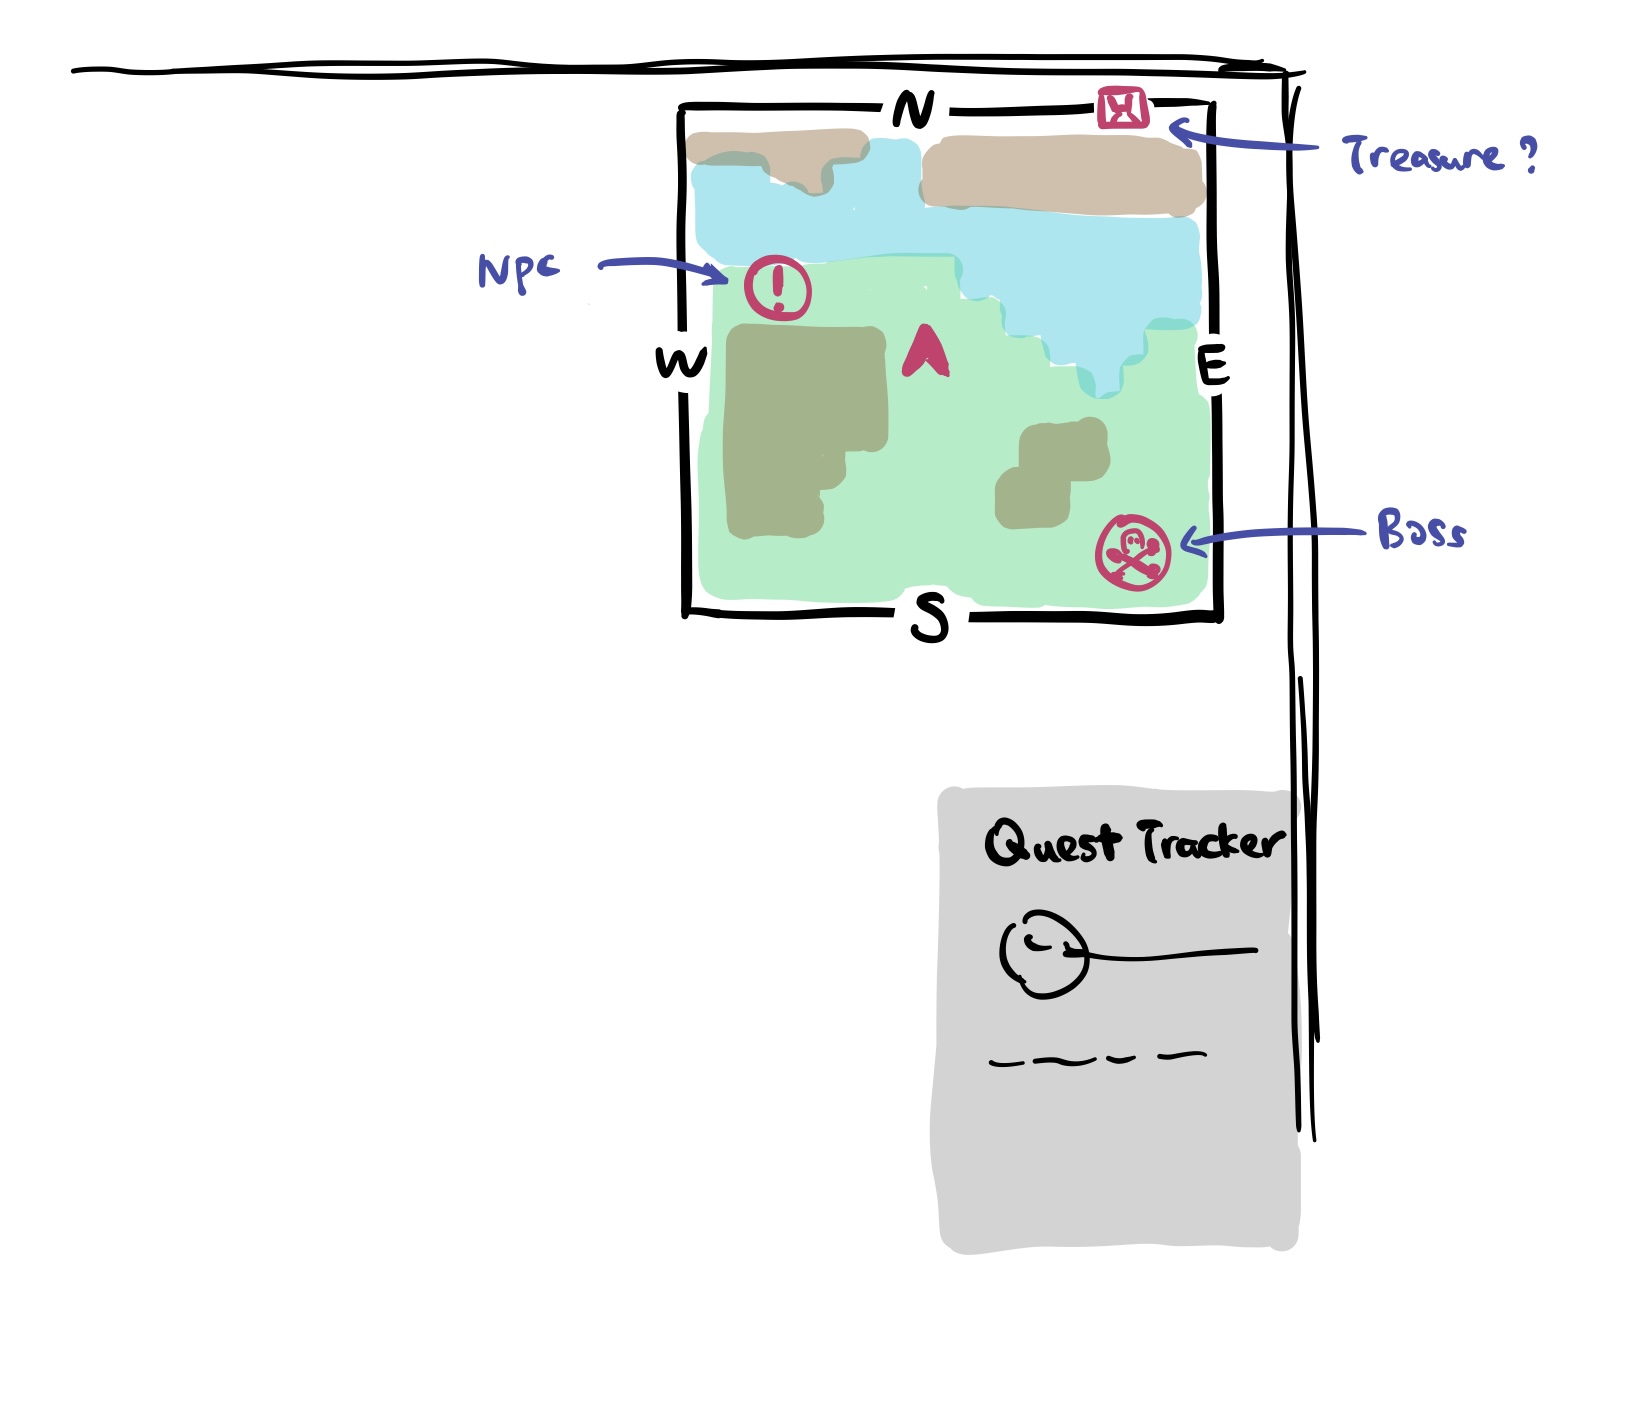 N
Treasure ?
Npc
!
W
E
Boss
S
Quest Tracker